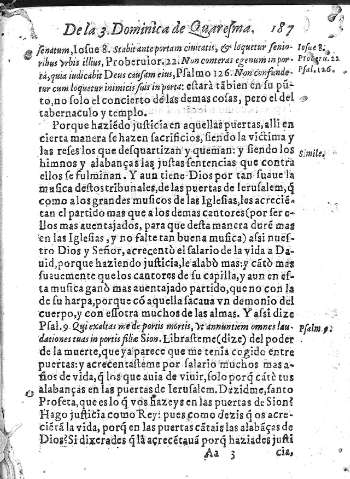 De la 3. Dominica de Quaresma. 187
senatum, Iosue 8. Stabit ante portam ciuitatis, & loquetur senio-
ribus vrbis illius, Proberuior. 22. Non conteras egenum in por-
ta, quia iudicabit Deus causam eius, Psalmo 126. Non confunde-
tur cum loquetur inimicis suis in porta: estarà tãbien en su pũ-
to, no solo el concierto de las demas cosas, pero el del
tabernaculo y templo.
Iosue 8.
Psal. 126.
Porque haziẽdo justicia en aquellas puertas, alli en
cierta manera se hazen sacrificios, siendo la victima y
las reses los que desquartizan y queman: y siendo los
himnos y alabanças las justas sentencias que contra
ellos se fulminan. Y aun tiene Dios por tan suaue la
musica destos tribunales, de las puertas de Ierusalem, q̃
como a los grandes musicos de las Iglesias, les acreciẽ-
tan el partido mas que a los demas cantores (por ser e-
llos mas auentajados, para que desta manera durẽ mas
en las Iglesias, y no falte tan buena musica) assi nues-
tro Dios y Señor, acrecentò el salario de la vida a Da-
uid, porque haziendo justicia, le alabò mas: y cãtò mas
suauemente que los cantores de su capilla, y aun en es-
ta musica ganò mas auentajado partido, que no con la
de su harpa, porque cõ aquella sacaua vn demonio del
cuerpo, y con essotra muchos de las almas. Y assi dize
Psal. 9. Qui exaltas me de portis mortis, vt annuntiem omnes lau-
dationes tuas in portis filiæ Sion. Librasteme (dize) del poder
de la muerte, que ya parece que me tenia cogido entre
puertas: y acrecentasteme por salario muchos mas a-
ños de vida, q̃ los que auia de viuir, solo porq̃ cãtè tus
alabanças en las puertas de Ierusalem. Dezidme, santo
Profeta, que es lo q̃ vos hazeys en las puertas de Sion?
Hago justicia como Rey: pues como dezis q̃ os acre-
ciẽtà la vida, porq̃ en las puertas cãtais las alabãças de
Dios? Si dixerades q̃ la acrecẽtauà porq̃ haziades justi
Simile.
Psalm 9.
Aa 3 cia,